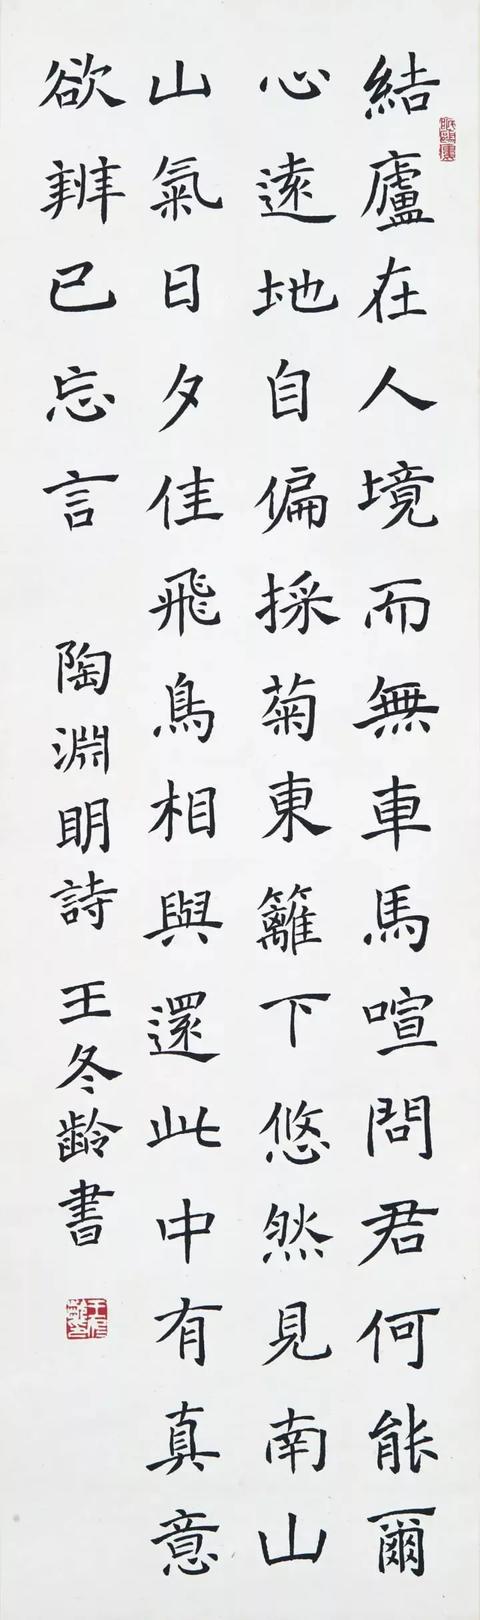 結廬在人境而無車馬喧問君何能爾
心遠地自偏採菊東籬下悠然見南山
山氣日夕佳飛鳥相與還此中有真意
欲辨已忘言 陶淵明詩 王冬齡書